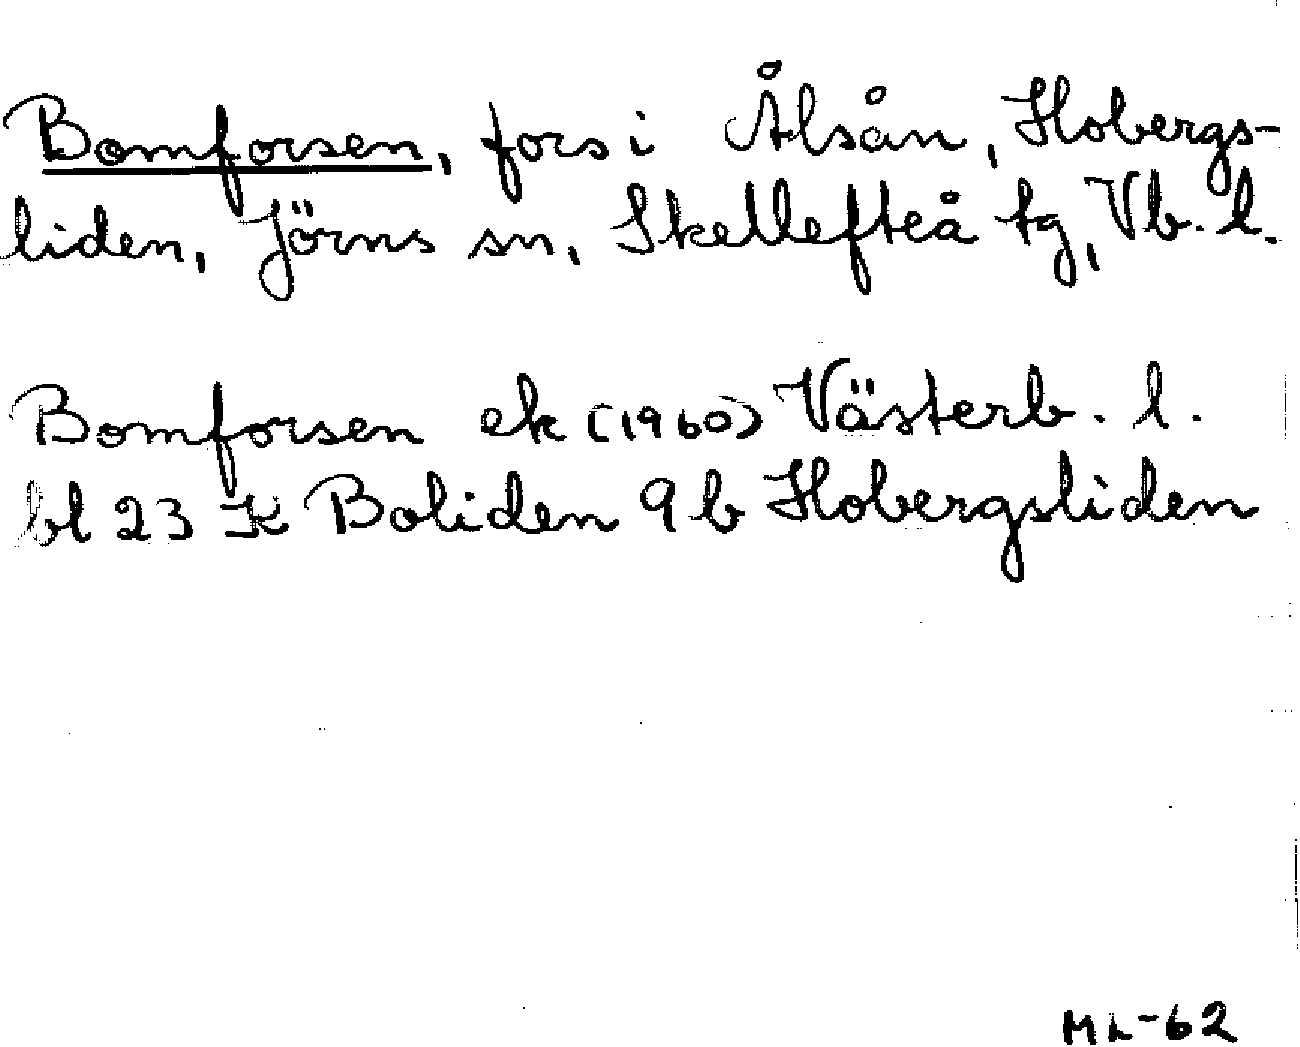 Bomforsen, fors i Ålsån, Hobergs-
liden, Jörns sn, Skellefteå tg, Vb. l.
Bomforsen ek (1960) Västerb. l.
bl 23 K Boliden 9 b Hobergsliden
ML-62